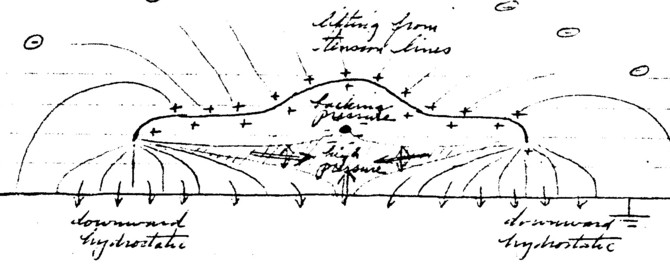 lifting from
tension lines
backing
pressure
high
pressure
downward
hydrostatic
downward
hydrostatic